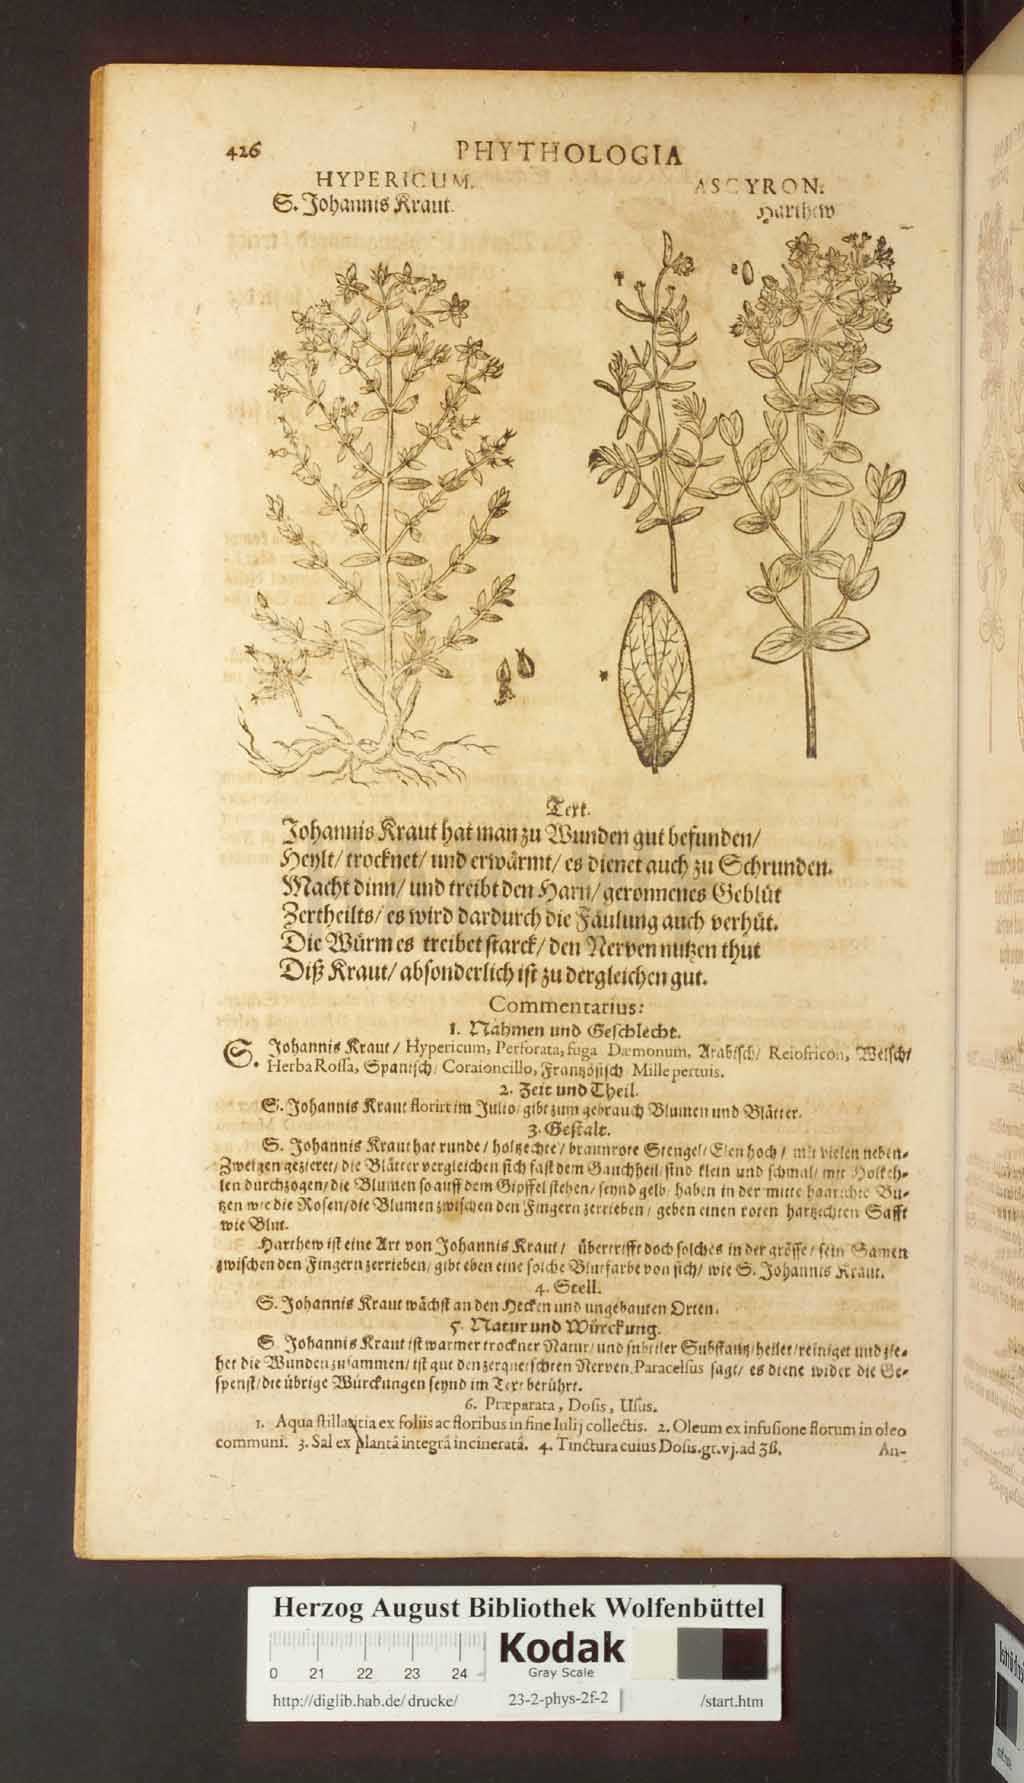 426
PHYTHOLOGIA
HYPERICUM.
S. Johannis Kraut.
ASCYRON.
Harthew
Text.
Johannis Kraut hat man zu Wunden gut befunden/
Heylt/ trocknet/ und erwärmt/ es dienet auch zu Schrunden.
Macht dinn/ und treibt den Harn/ geronnenes Geblüt
Zertheilts/ es wird dardurch die Fäulung auch verhüt.
Die Würm es treibet starck/ den Nerven nutzen thut
Diß Kraut/ absonderlich ist zu dergleichen gut.
Commentarius:
1. Nahmen und Geschlecht.
S. Johannis Kraut / Hypericum, Perforata, fuga Dæmonum, Arabisch/ Reiofricon, Welsch/
Herba Rossa, Spanisch/ Coraioncillo, Französisch/ Mille pertuis.
2. Zeit und Theil.
S. Johannis Kraut florirt im Julio/ gibt zum gebrauch Blumen und Blätter.
3. Gestalt.
S. Johannis Kraut hat runde / holtzechte / braunrote Stengel/ Elen hoch / mit vielen neben-
Zweigen gezieret/ die Blätter vergleichen sich fast dem Gauchheil/ sind klein und schmal/ mit Holtzh-
len durchzogen/ die Blumen so auff dem Gipffel stehen/ seynd gelb/ haben in der mitte haarechte Bu-
tzen wie die Rosen/ die Blumen zwischen den Fingern zerrieben/ geben einen roten hartzechten Safft
wie Blut.
Harthew ist eine Art von Johannis Kraut/ übertrifft doch solches in der grösse/ sein Samen
zwischen den Fingern zerrieben/ gibt eben eine solche Blutfarbe von sich/ wie S. Johannis Kraut.
4. Stell.
S. Johannis Kraut wächst an den Hecken und ungebauten Orten.
5. Natur und Würckung.
S. Johannis Kraut ist warmer trockner Natur/ und subtiler Substantz/ heilet/ reiniget und zie-
het die Wunden zusammen/ ist gut den zerquetschten Nerven, Paracelsus sagt/ es diene wider die Ge-
spenst/ die übrige Würckungen seynd im Text berührt.
6. Præparata, Dosis, Usus.
1. Aqua stillatitia ex foliis ac floribus in fine Iulij collectis. 2. Oleum ex infusione florum in oleo
communi. 3. Sal ex plantâ integrâ incineratâ. 4. Tinctura cuius Dosis. gt. vj. ad ʒß.
An-
Herzog August Bibliothek Wolfenbüttel
Kodak
Gray Scale
0 21 22 23 24
http://diglib.hab.de/drucke/ 23-2-phys-2f-2 /start.htm